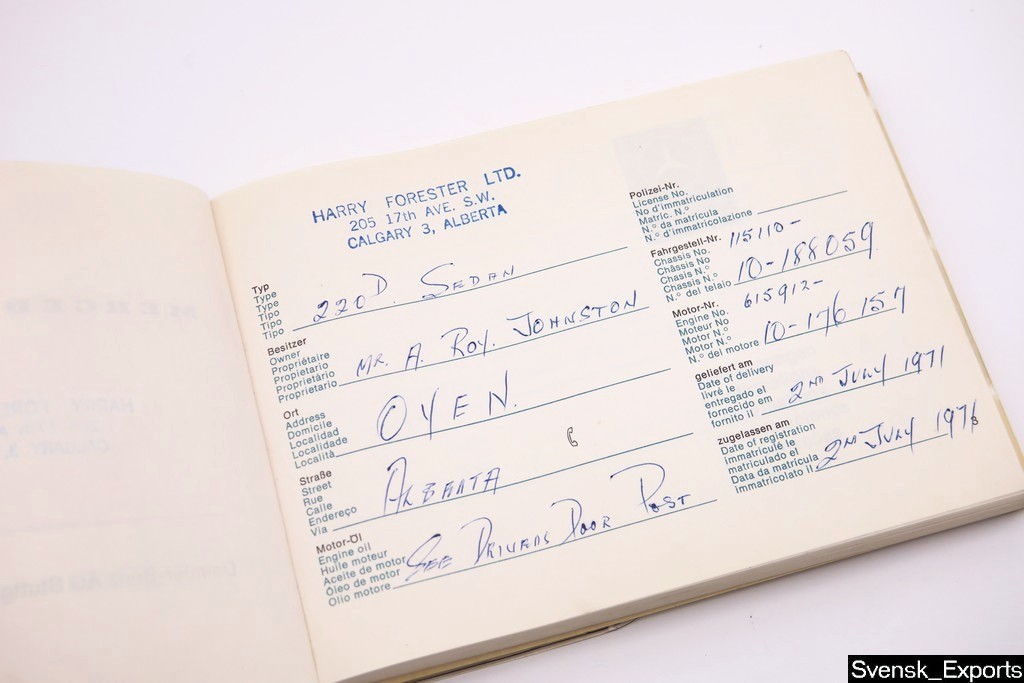 HARRY FORESTER LTD.
205 17th AVE. S.W.
CALGARY 3, ALBERTA
Typ
Type
Type
Tipo
Tipo
Tipo
220D. SEDAN
Besitzer
Owner
Propriétaire
Propietario
Proprietário
Proprietario
MR. A. ROY. JOHNSTON
Ort
Address
Domicile
Localidad
Localidade
Località
OYEN.
Straße
Street
Rue
Calle
Endereço
Via
ALBERTA
Motor-Öl
Engine oil
Huile moteur
Aceite de motor
Óleo de motor
Olio motore
SEE DRIVERS DOOR POST
Polizei-Nr.
License No.
No d'immatriculation
Matric. N.º
N.º da matrícula
N.º d'immatricolazione
Fahrgestell-Nr.
Chassis No.
Châssis No
Chasis N.º
Chassis N.º
N.º del telaio
115110-
10-188059
Motor-Nr.
Engine No.
Moteur No
Motor N.º
Motor N.º
N.º del motore
615912-
10-176 157
geliefert am
Date of delivery
livré le
entregado el
fornecido em
fornito il
2ND JULY 1971
zugelassen am
Date of registration
immatriculé le
matriculado el
Data da matrícula
immatricolato il
2ND JULY
Svensk_Exports